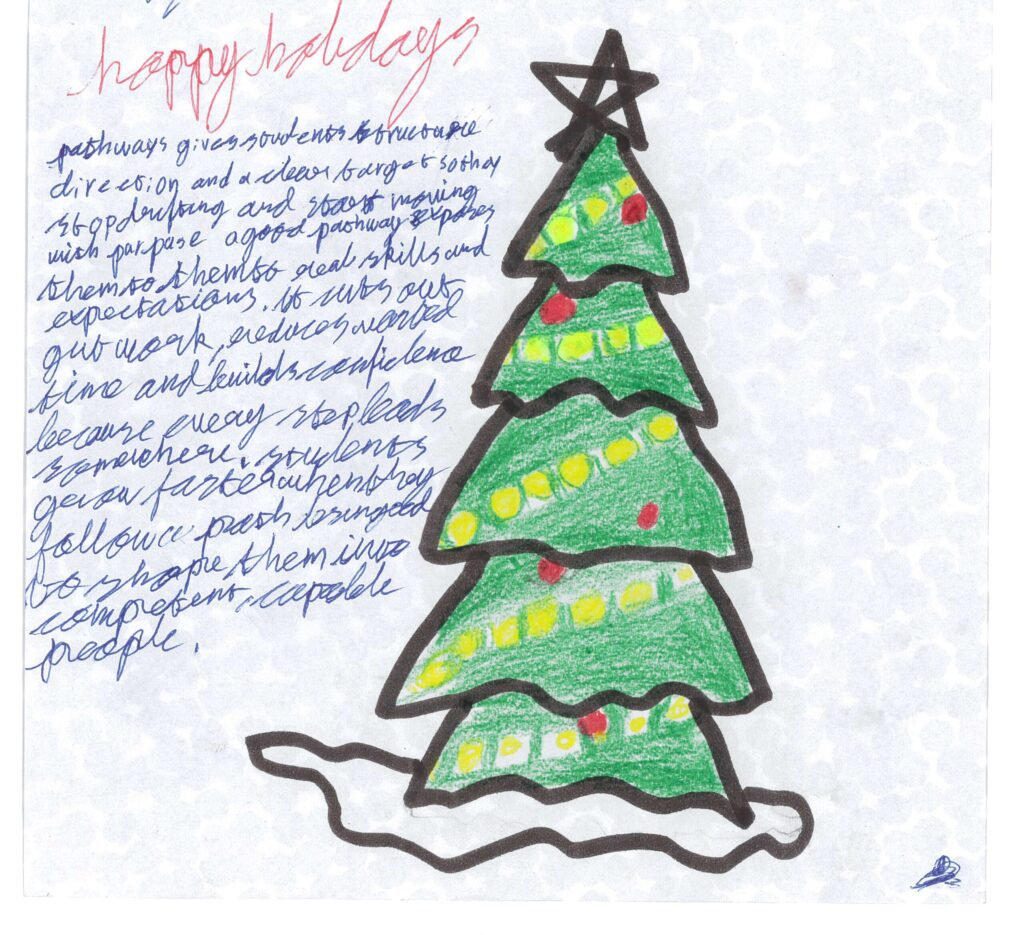 happy holidays
pathways gives students structure
direction and a clear target so thay
stop drifting and start moving
with purpase a good pathway exposes
them to them to real skills and
expectations. it cuts out
gut work, reduces wasted
time and builds confidence
because every step leads
somewhere. students
grow faster when thay
follow a path designed
to shape them into
competent, capable
people.